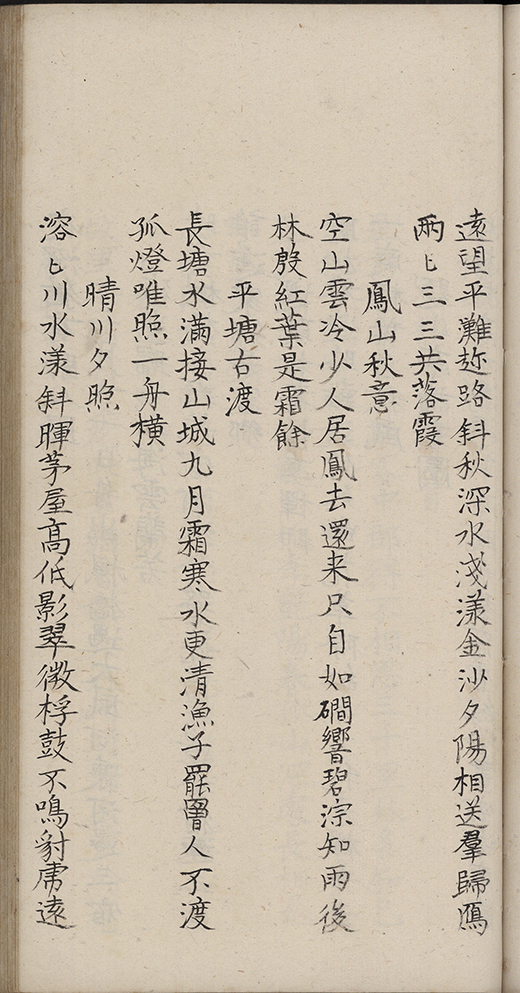 遠望平灘逕路斜秋深水淺漾金沙夕陽相送羣歸鴈
兩〻三三共落霞
鳳山秋意
空山雲冷少人居鳳去還来只自如磵響碧淙知雨後
林殷紅葉是霜餘
平塘古渡
長塘水滿接山城九月霜寒水更清漁子罷罾人不渡
孤燈唯照一舟橫
晴川夕照
溶〻川水漾斜暉茅屋高低影翠微桴鼓不鳴豺虎遠